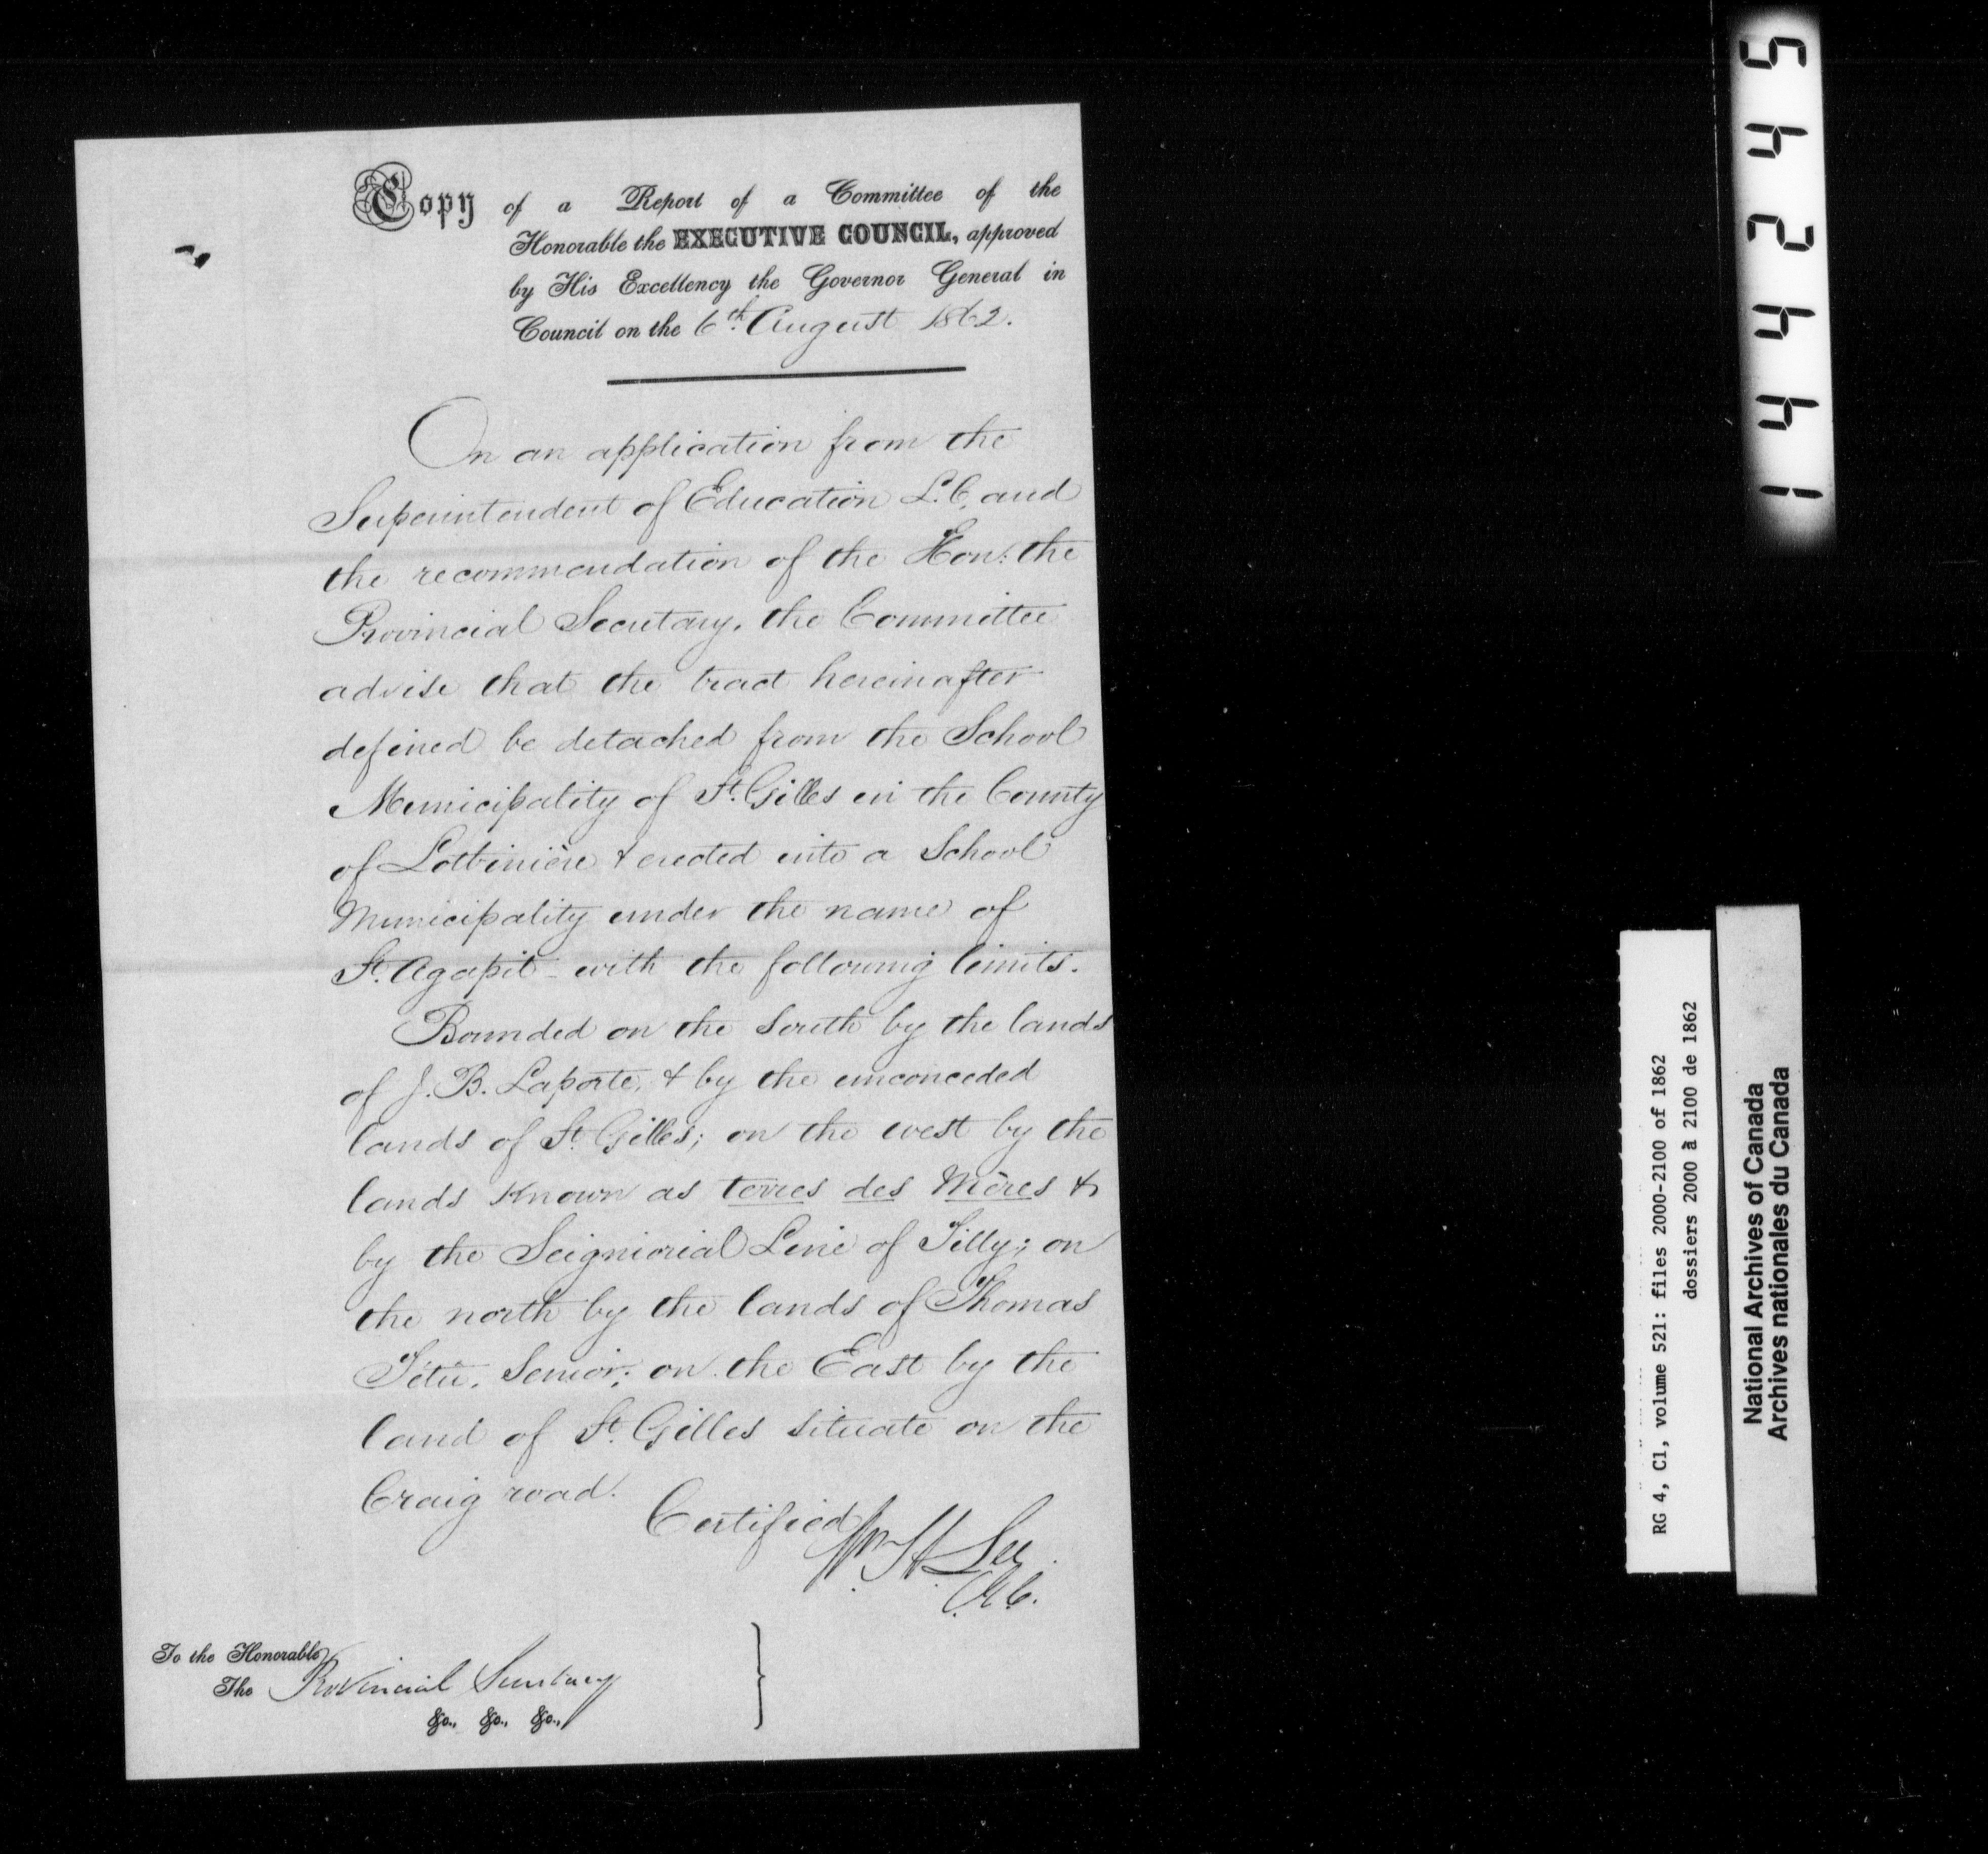 Copy of a Report of a Committee of the
Honorable the EXECUTIVE COUNCIL, approved
by His Excellency the Governor General in
Council on the 6th. August 1862.
On an application from the
Superintendent of Education L.C. and
the recommendation of the Hon: the
Provincial Secretary, the Committee
advise that the tract hereinafter
defined be detached from the School
Municipality of St. Gilles in the County
of Lotbinière & erected into a School
Municipality under the name of
St. Agapit - with the following limits.
Bounded on the South by the lands
of J. B. Laporte, & by the unconceded
lands of St. Gilles; on the west by the
lands known as terres des Mères &
by the Seigniorial Line of Tilly; on
the north by the lands of Thomas
Tétu, Senior; on the East by the
land of St. Gilles situate on the
Craig road.
Certified
Wm. H. Lee
C.E.C.
To the Honorable
The Provincial Secretary
&c., &c., &c.,
RG 4, C1, volume 521: files 2000-2100 of 1862
dossiers 2000 à 2100 de 1862
National Archives of Canada
Archives nationales du Canada
144245